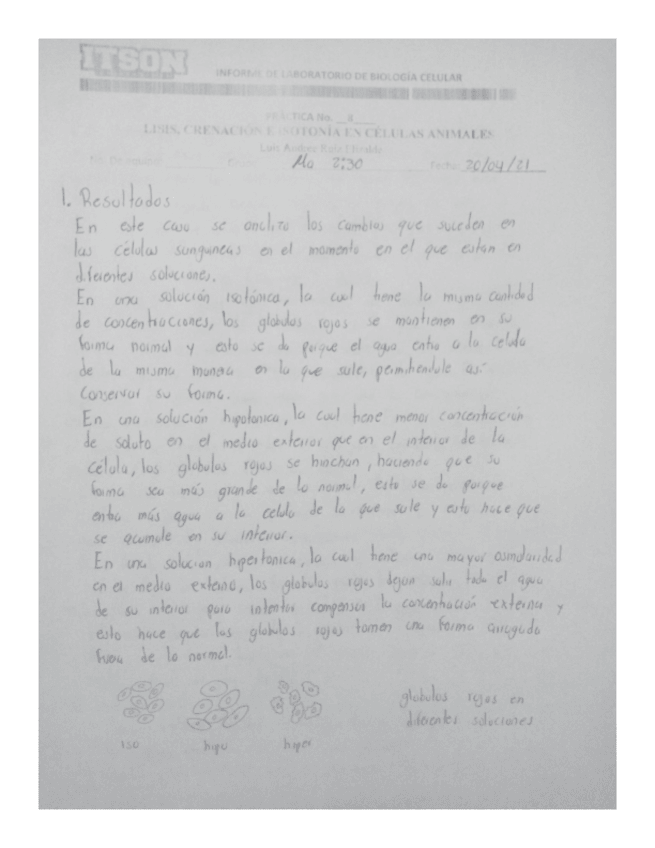 ITSON
INFORME DE LABORATORIO DE BIOLOGÍA CELULAR
PRÁCTICA No. 8
LISIS, CRENACIÓN E ISOTONÍA EN CÉLULAS ANIMALES
Luis
Ma 2:30 Fecha 20/04/21
1. Resultados
En este caso se analizo los cambios que suceden en
las células sanguineas en el momento en el que estan en
diferentes soluciones.
En una solución isotónica, la cual tiene la misma cantidad
de concentraciones, los globulos rojos se mantienen en su
forma normal y esto se da porque el agua entra a la celula
de la misma manera en la que sale, permitiendole así
conservar su forma.
En una solución hipotonica, la cual tiene menor concentración
de soluto en el medio exterior que en el interior de la
célula, los glóbulos rojos se hinchan, haciendo que su
forma sea más grande de lo normal, esto se da porque
entra más agua a la celula de la que sale y esto hace que
se acumule en su interior.
En una solucion hipertonica, la cual tiene una mayor osmolaridad
en el medio externo, los globulos rojos dejan salir toda el agua
de su interior para intentar compensar la concentración externa y
esto hace que los globulos rojos tomen una forma arrugada
fuera de lo normal.
iso hipo hiper
globulos rojos en
diferentes soluciones